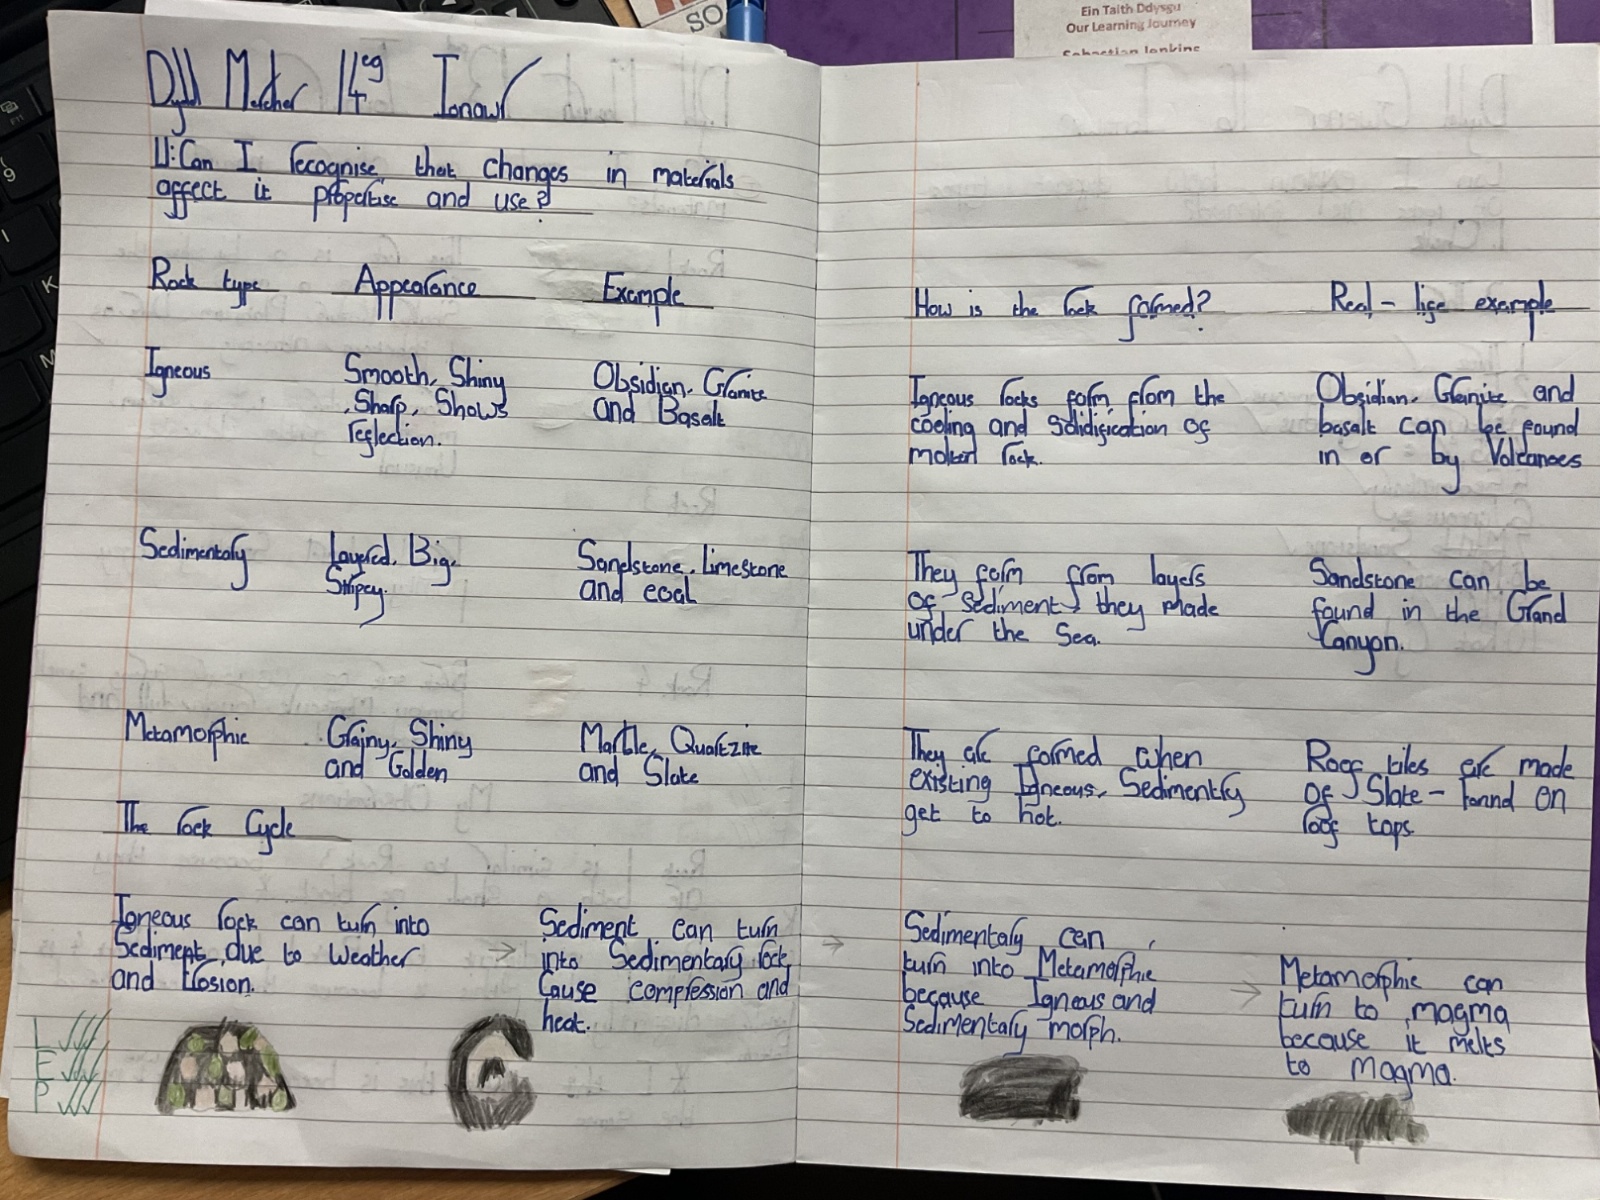 SO
Ein Taith Ddysgu
Our Learning Journey
Sebastian Jenkins
Dydd Mercher 14eg Ionawr
U:Can I recognise that changes in materials
affect it propertise and use?
Rock type Appearance Example
Igneous
Smooth, Shiny
, Sharp, Shows
reflection.
Obsidian, Granite
and Basalt
Sedimentary
Layered, Big,
Stripey.
Sandstone, Limestone
and coal
Metamorphic
Grainy, Shiny
and Golden
Marble, Quartzite
and Slate
The rock Cycle
Igneous rock can turn into
Sediment due to Weather
and Erosion.
→
Sediment can turn
into Sedimentary rock
Cause compression and
heat.
L
E
P
How is the rock formed? Real - life example
Igneous rocks form from the
cooling and Solidification of
molten rock.
Obsidian, Granite and
basalt can be found
in or by Volcanoes
They form from layers
of Sediment they made
under the Sea.
Sandstone can be
found in the Grand
Canyon.
They are formed when
existing Igneous, Sedimentry
get to hot.
Roof tiles are made
of Slate - found on
roof tops
→
Sedimentary can
turn into Metamorphic
because Igneous and
Sedimentary morph.
→
Metamorphic can
turn to magma
because it melts
to magma.